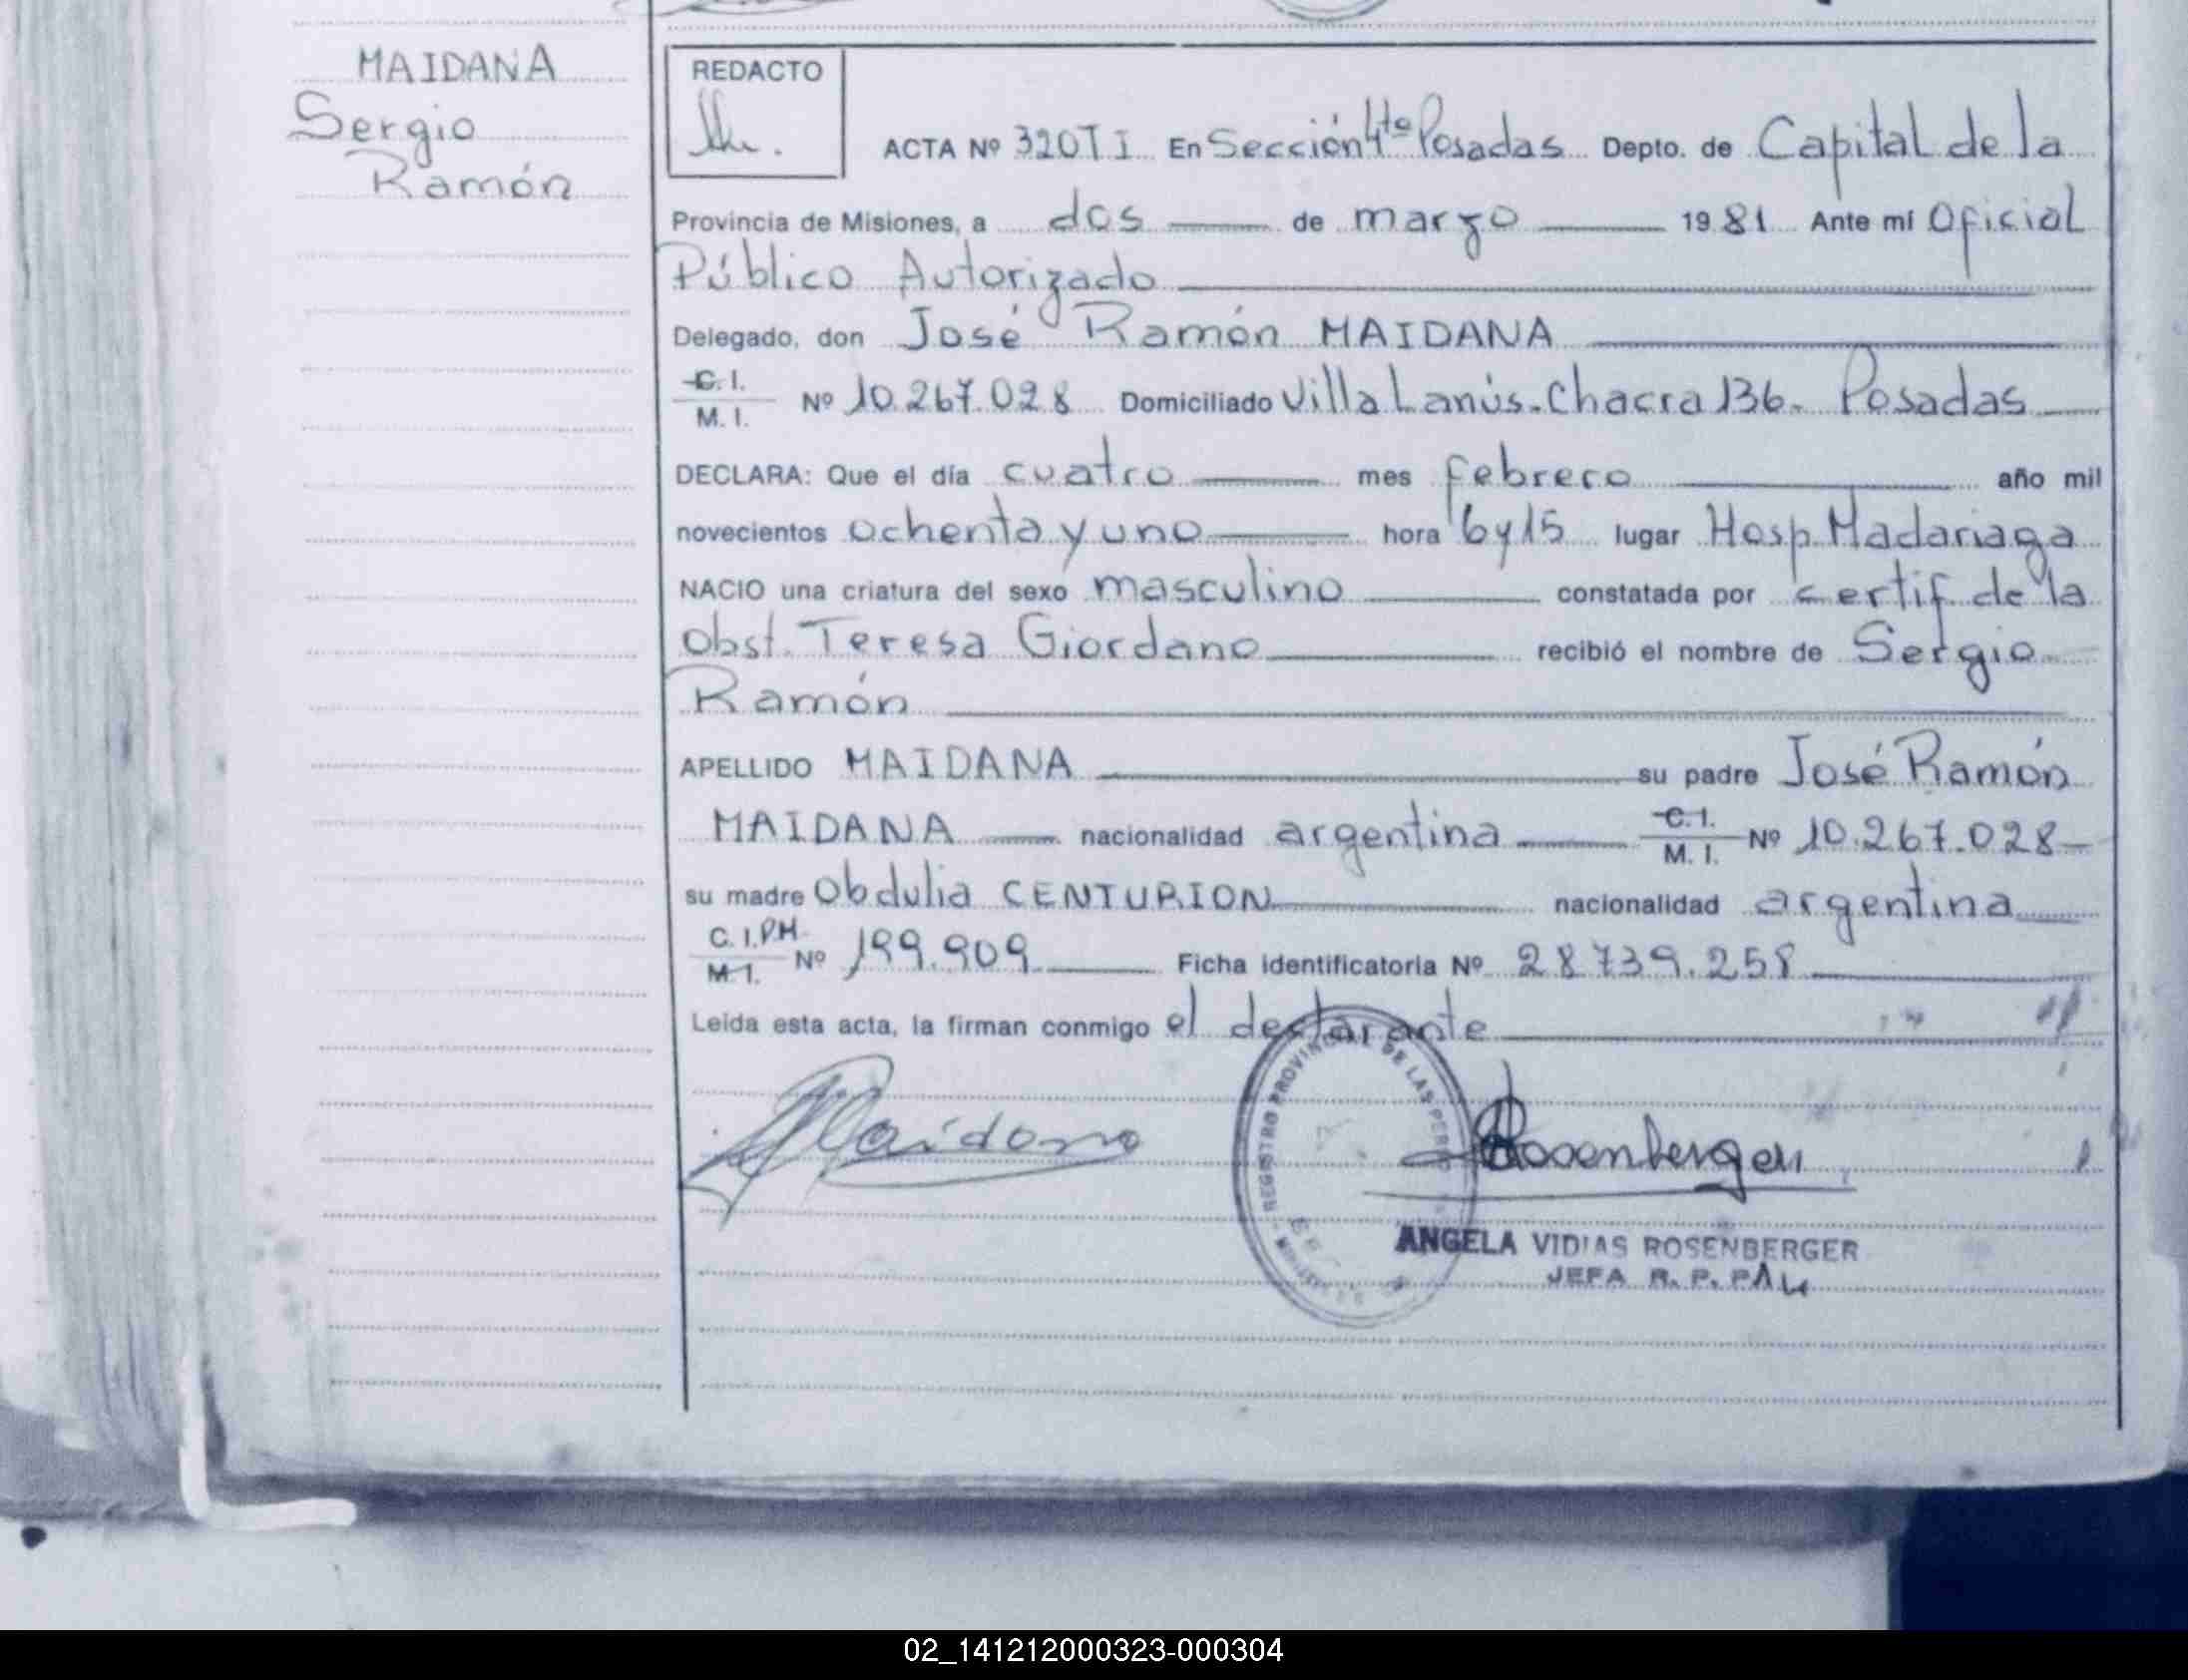 MAIDANA
Sergio
Ramón
REDACTO
ACTA Nº 320 T I En Sección 4ta Posadas Depto. de Capital de la
Provincia de Misiones, a dos de marzo 1981 Ante mí Oficial
Público Autorizado
Delegado, don José Ramón MAIDANA
C. I.
M. I. Nº 10.267.028 Domiciliado Villa Lanús. Chacra 136. Posadas
DECLARA: Que el día cuatro mes febrero año mil
novecientos ochenta y uno hora 6 y 15 lugar Hosp. Madariaga
NACIO una criatura del sexo masculino constatada por certif. de la
obst. Teresa Giordano recibió el nombre de Sergio
Ramón
APELLIDO MAIDANA su padre José Ramón
MAIDANA nacionalidad argentina C. I. M. I. Nº 10.267.028
su madre Obdulia CENTURION nacionalidad argentina
C. I. P.M.
M. I. Nº 199.909 Ficha identificatoria Nº 28739.258
Leída esta acta, la firman conmigo el declarante
REGISTRO PROVINCIAL DE LAS PERS
Maidana
Rosenberger
ANGELA VIDIAS ROSENBERGER
JEFA R. P. P.
02_141212000323-000304